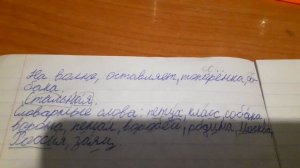 На волне, оставляет, топорёнка, со-
бака
Стальная.
Словарные слова: петух, класс, собака
ворона, пенал, воробей, родина, Москва,
Россия, заяц.